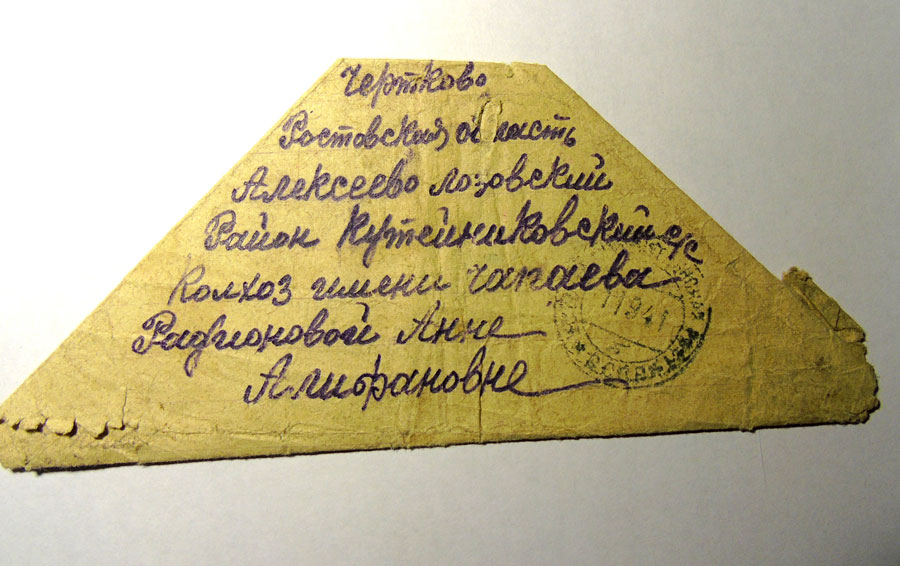 Чертково
Ростовская область
Алексеево лозовский
Район Кутейниковский с/с
Колхоз имени Чапаева
Радионовой Анне
Алифановне
11 9 41